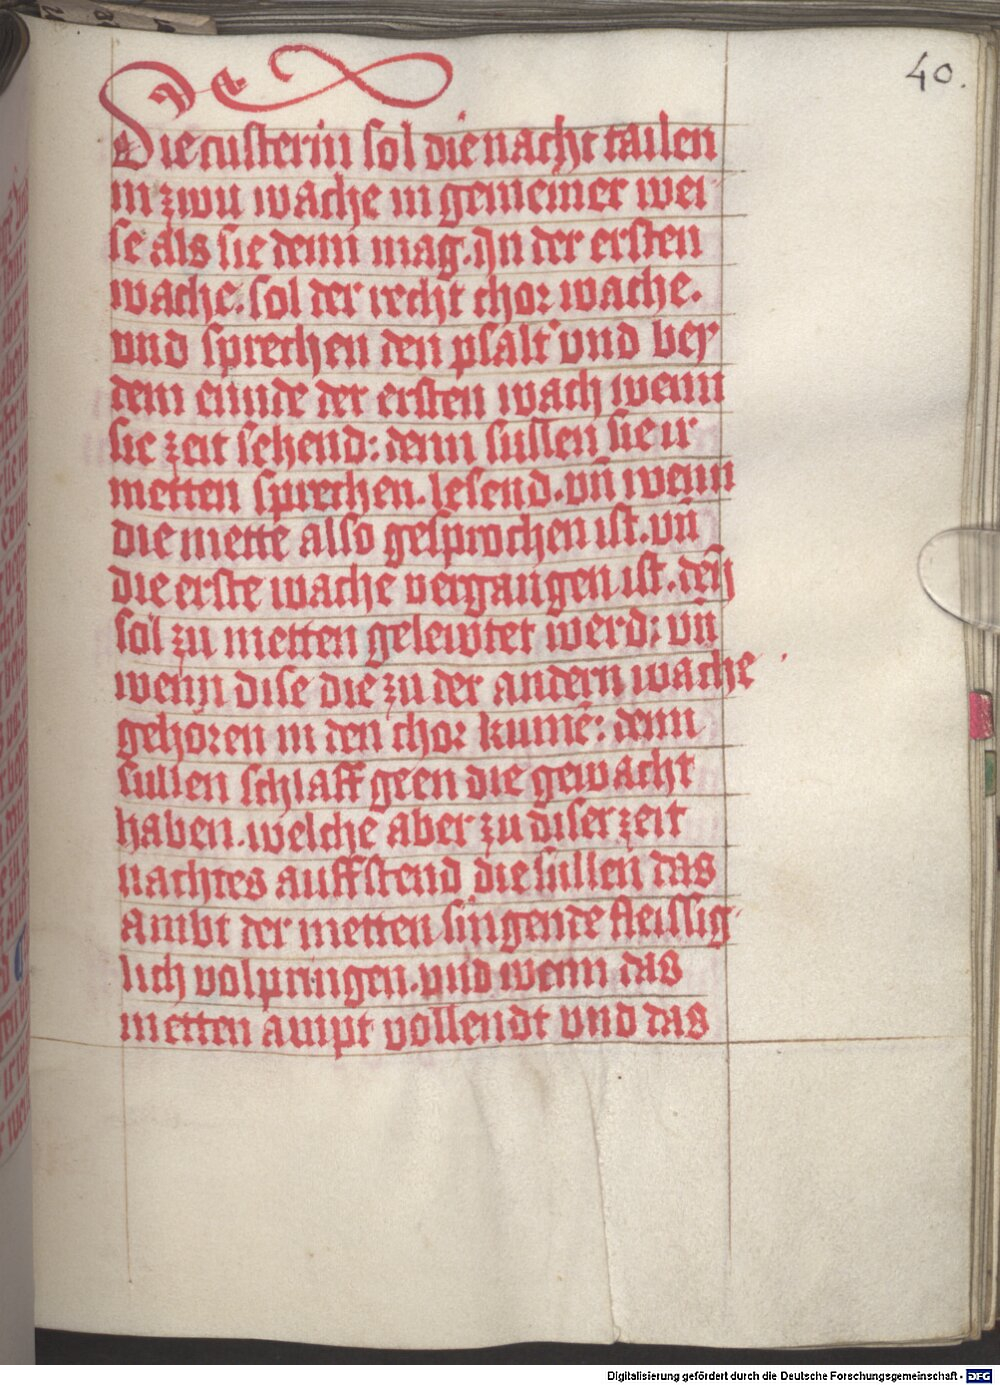 40.
Die custerin sol die nacht tailen
in zwu wache in gemeiner wei
se als sie denn mag. Jn der ersten
wache. sol der recht chor wache.
vnd sprechen den psalt vnd bey
dem ennde der ersten wach wenn
sie zeit sehend: denn sullen sie ir
metten sprechen. lesend. vn̄ wenn
die mette also gesprochen ist. vn̄
die erste wache vergangen ist. den̄
sol zu metten gelewtet werd: vn̄
wenn dise die zu der andern wache
gehoren in den chor kumē: denn
sullen schlaff geen die gewacht
haben. welche aber zu diser zeit
nachtes auffstend die sullen das
ambt der metten singende fleissig
lich volpringen. vnd wenn das
metten ampt vollendt vnd das
Digitalisierung gefördert durch die Deutsche Forschungsgemeinschaft - DFG